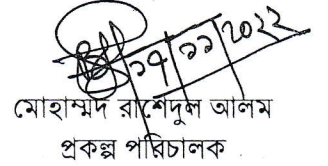 ১৭/১১/২০২২
মোহাম্মদ রাশেদুল আলম
প্রকল্প পরিচালক